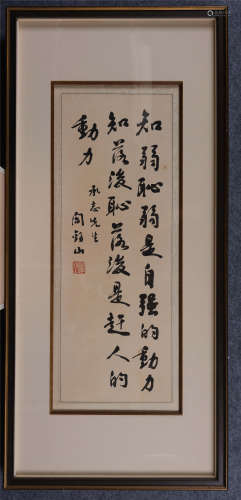 知弱恥弱是自強的動力
知落後恥落後是趕人的
動力
承志先生
閻錫山